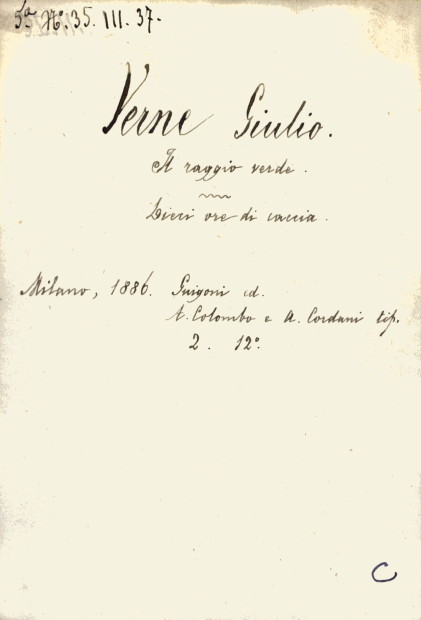 5ª Nº. 35. III. 37.
Verne Giulio.
Il raggio verde.
Dieci ore di caccia.
Milano, 1886. Guigoni ed.
t. Colombo e A. Cordani tip.
2. 12º.
C